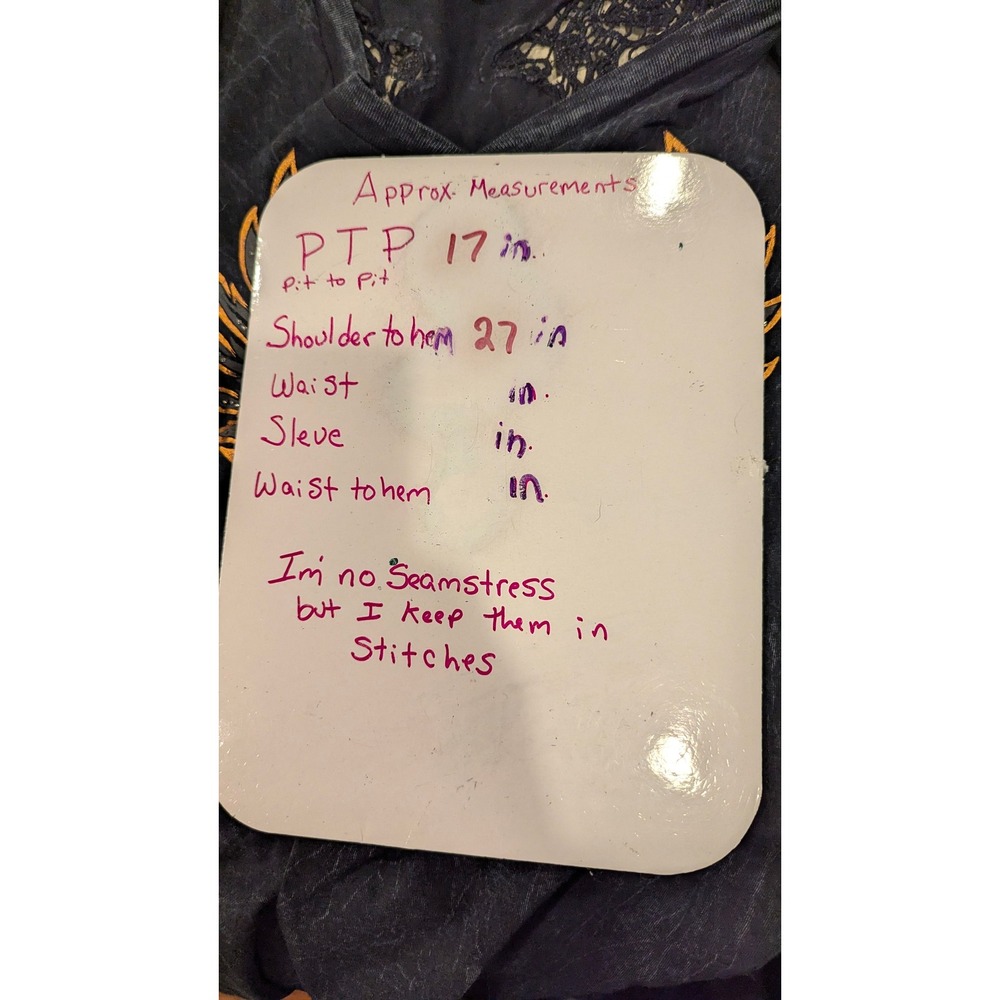 Approx. Measurements
PTP 17 in.
Pit to Pit
Shoulder to hem 27 in
Waist in.
Sleve in.
Waist to hem in.
I'm no Seamstress
but I keep them in
Stitches